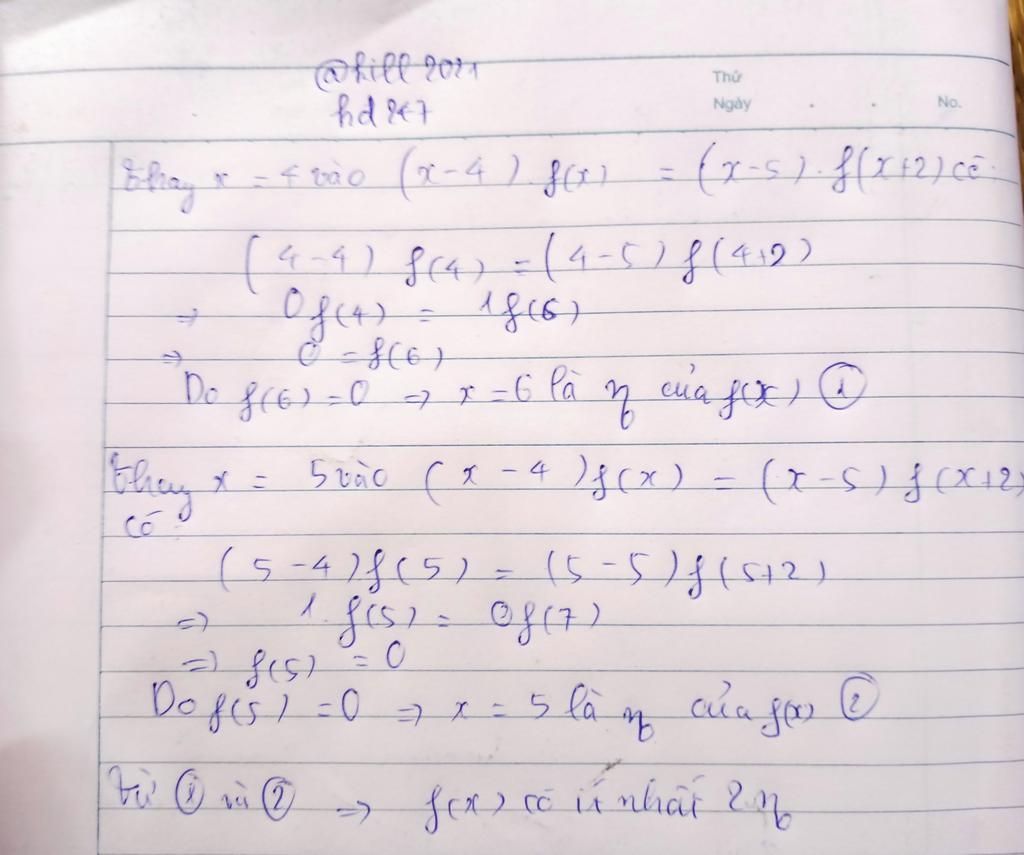 @hill2021
hd247
Thứ
Ngày . . No.
Thay x = 4 vào (x-4).f(x) = (x-5).f(x+2) có:
(4-4) f(4) = (4-5) f(4+2)
=> 0f(4) = 1f(6)
=> 0 = f(6)
Do f(6) = 0 => x = 6 là η của f(x) ①
Thay x = 5 vào (x-4)f(x) = (x-5) f(x+2)
có
(5-4)f(5) = (5-5)f(5+2)
=> 1.f(5) = 0f(7)
=> f(5) = 0
Do f(5) = 0 => x = 5 là η của f(x) ②
Từ ① và ② => f(x) có ít nhất 2 η